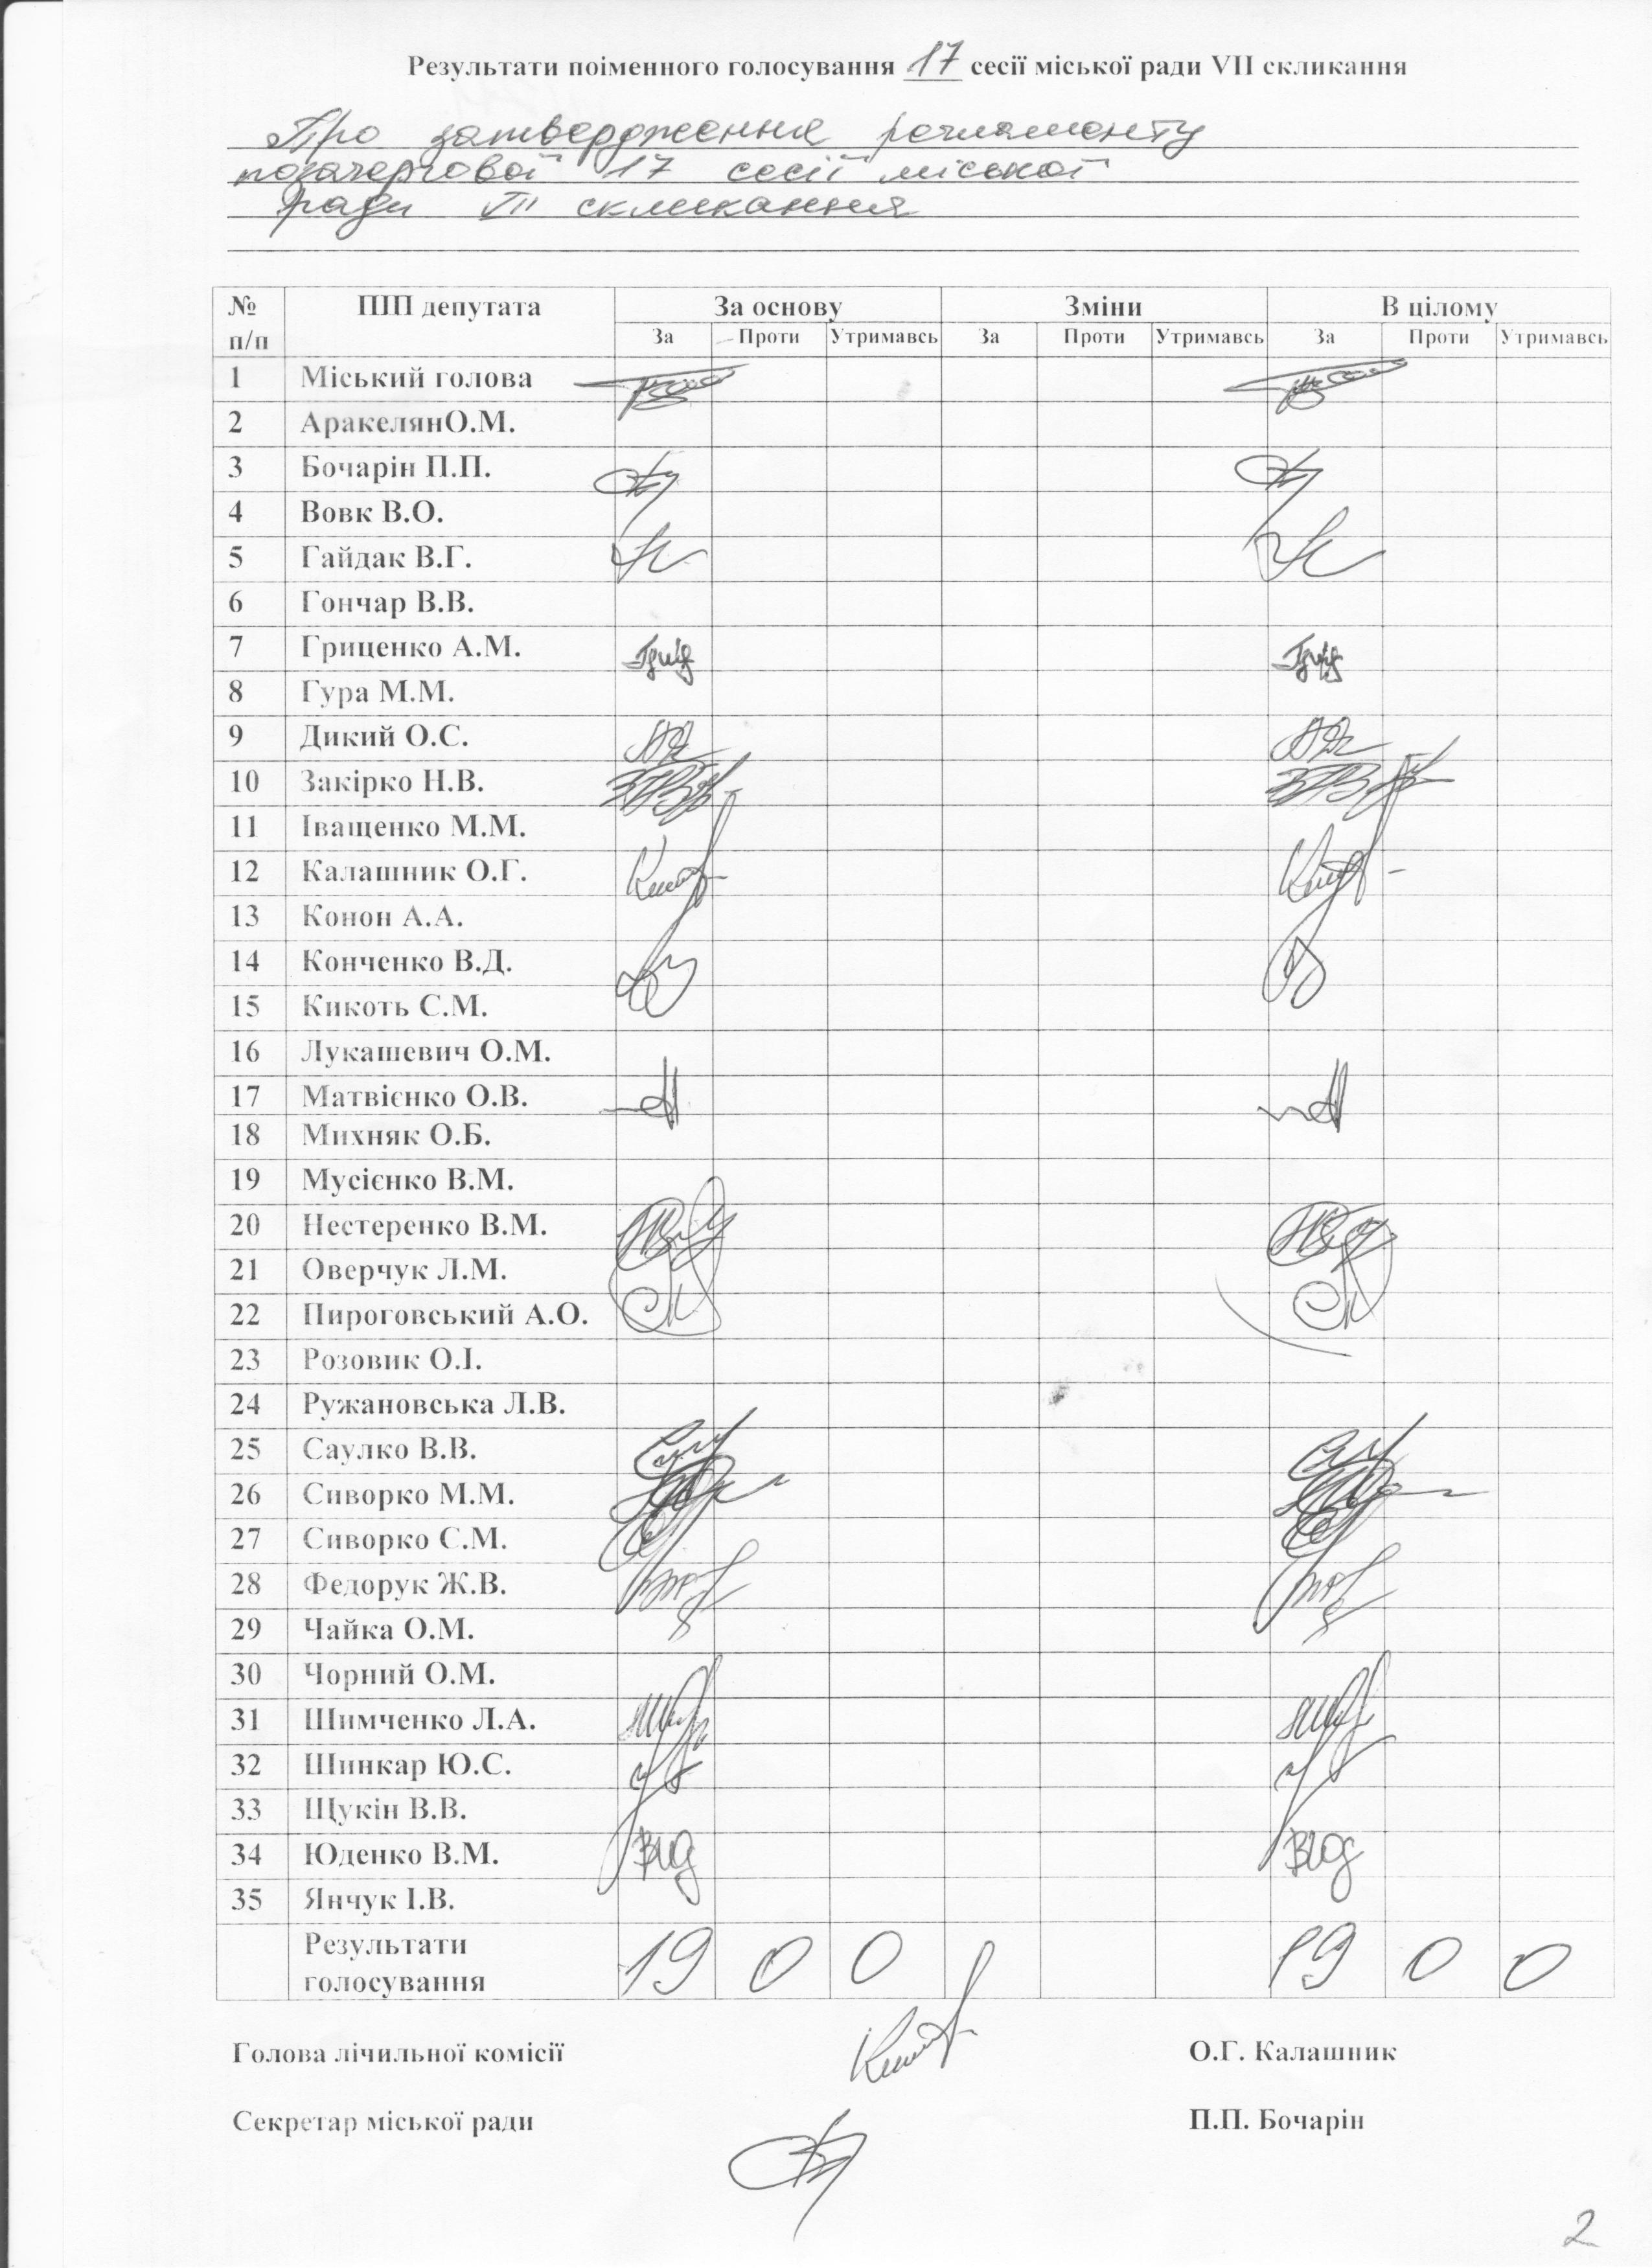 Результати поіменного голосування 17 сесії міської ради VII скликання
Про затвердження регламенту
позачергової 17 сесії міської
ради VII скликання
№ п/п ПІП депутата За основу Зміни В цілому
За Проти Утримавсь За Проти Утримавсь За Проти Утримавсь
1 Міський голова
2 АракелянО.М.
3 Бочарін П.П.
4 Вовк В.О.
5 Гайдак В.Г.
6 Гончар В.В.
7 Гриценко А.М.
8 Гура М.М.
9 Дикий О.С.
10 Закірко Н.В.
11 Іващенко М.М.
12 Калашник О.Г.
13 Конон А.А.
14 Конченко В.Д.
15 Кикоть С.М.
16 Лукашевич О.М.
17 Матвієнко О.В.
18 Михняк О.Б.
19 Мусієнко В.М.
20 Нестеренко В.М.
21 Оверчук Л.М.
22 Пироговський А.О.
23 Розовик О.І.
24 Ружановська Л.В.
25 Саулко В.В.
26 Сиворко М.М.
27 Сиворко С.М.
28 Федорук Ж.В.
29 Чайка О.М.
30 Чорний О.М.
31 Шимченко Л.А.
32 Шинкар Ю.С.
33 Щукін В.В.
34 Юденко В.М.
35 Янчук І.В.
Результати голосування 19 0 0 19 0 0
Голова лічильної комісії О.Г. Калашник
Секретар міської ради П.П. Бочарін
2